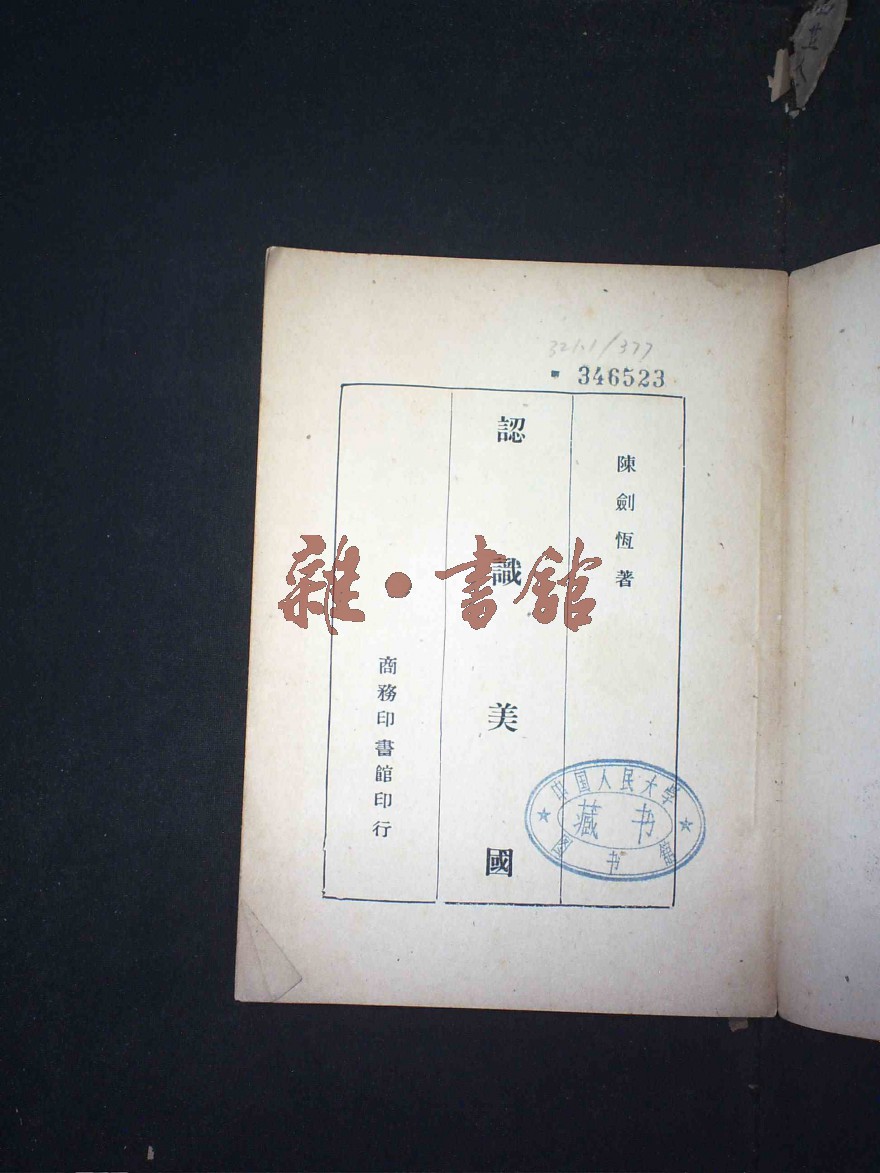 321.1/377
346523
陳劍恆著
認識美國
商務印書館印行
雜·書館
中国人民大学
藏书
图书館